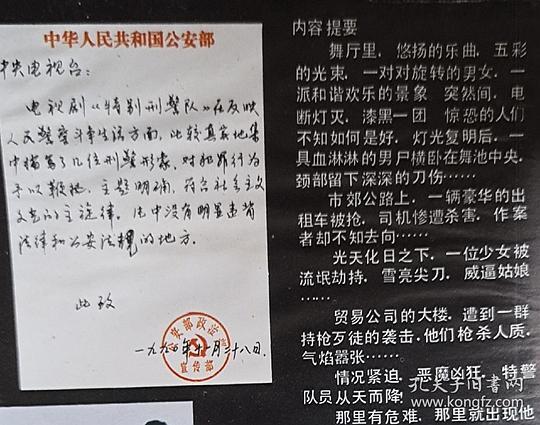 中华人民共和国公安部
中央电视台：
电视剧《特别刑警队》在反映
人民警察斗争生活方面，比较真实地集
中描写了几位刑警形象，对犯罪行为
予以鞭挞，主题明确，符合社会主义
文艺的主旋律。片中没有明显违背
法律和公安法规的地方。
此致
公安部政治部
宣传部
一九九〇年十一月二十八日
内容提要
舞厅里．悠扬的乐曲．五彩
的光束．一对对旋转的男女．一
派和谐欢乐的景象　突然间．电
断灯灭．漆黑一团　惊恐的人们
不知如何是好．灯光复明后．一
具血淋淋的男尸横卧在舞池中央．
颈部留下深深的刀伤……
市郊公路上．一辆豪华的出
租车被抢．司机惨遭杀害．作案
者却不知去向……
光天化日之下．一位少女被
流氓劫持．雪亮尖刀．威逼姑娘
……
贸易公司的大楼．遭到一群
持枪歹徒的袭击．他们枪杀人质．
气焰嚣张……
情况紧迫．恶魔凶狂．特警
队员从天而降！
那里有危难．那里就出现他
孔夫子旧书网
www.kongfz.com